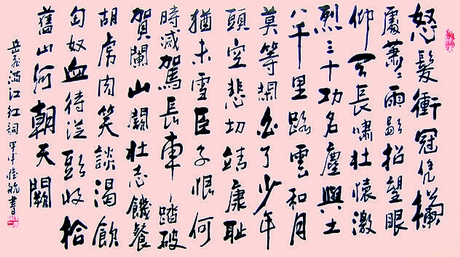 怒髮衝冠凭欄
處蕭〻雨歇抬望眼
仰天長嘯壯懷激
烈三十功名塵與土
八千里路雲和月
莫等閑白了少年
頭空悲切靖康恥
猶未雪臣子恨何
時滅駕長車踏破
賀蘭山闕壯志饑餐
胡虜肉笑談渴飲
匈奴血待從頭收拾
舊山河朝天闕
岳飛滿江紅詞甲申書